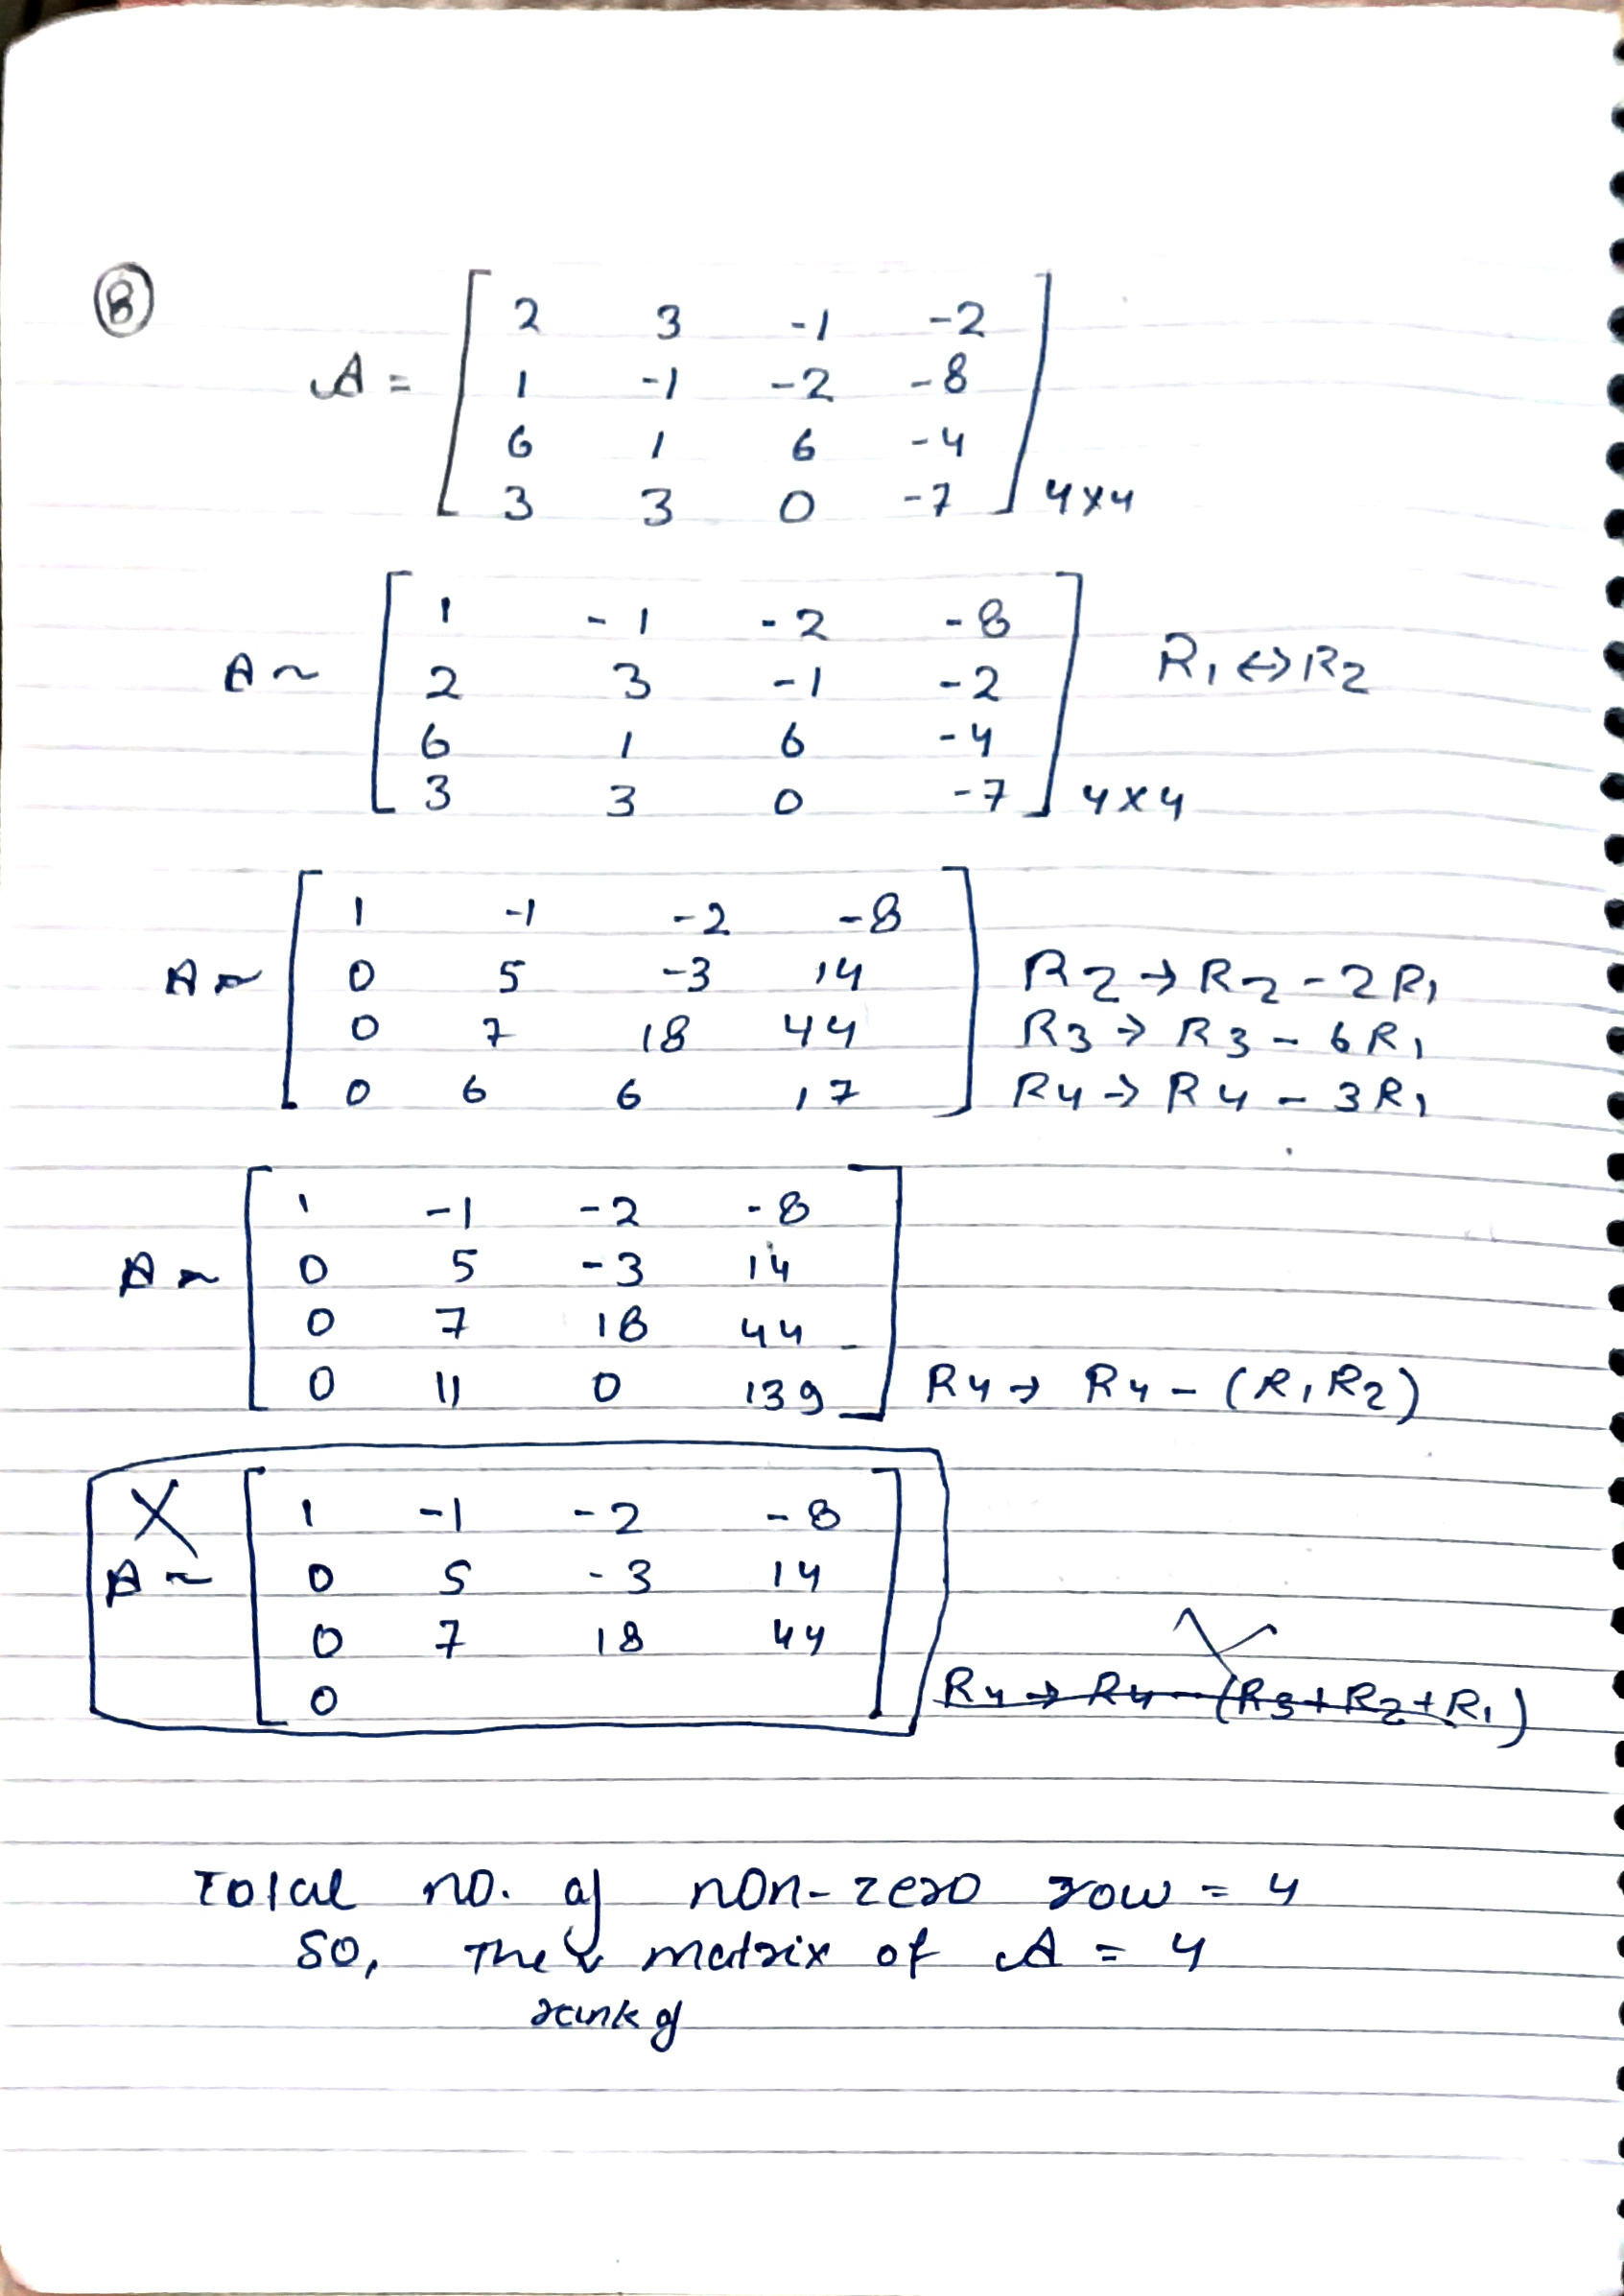 8
A = [ 2 3 -1 -2
1 -1 -2 -8
6 1 6 -4
3 3 0 -7 ] 4x4
A ~ [ 1 -1 -2 -8
2 3 -1 -2
6 1 6 -4
3 3 0 -7 ] 4x4 R1 ↔ R2
A ~ [ 1 -1 -2 -8
0 5 -3 14
0 7 18 44
0 6 6 17 ] R2 → R2 - 2R1
R3 → R3 - 6R1
R4 → R4 - 3R1
A ~ [ 1 -1 -2 -8
0 5 -3 14
0 7 18 44
0 11 0 139 ] R4 → R4 - (R1R2)
X
A ~ [ 1 -1 -2 -8
0 5 -3 14
0 7 18 44
0 ] R4 → R4 - (R3+R2+R1)
Total no. of non-zero row = 4
So, The rank of matrix of A = 4